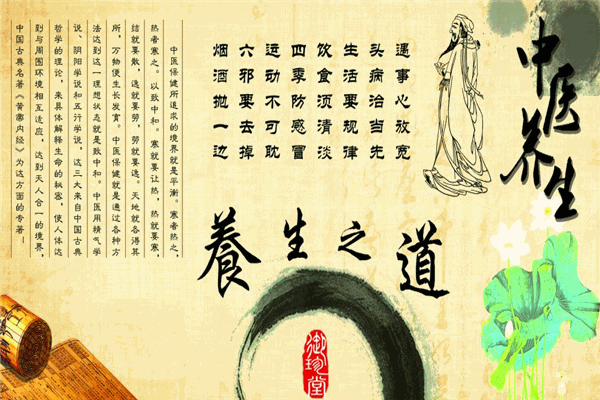 中医养生
遇事心放宽
头病治当先
生活要规律
饮食须清淡
四季防感冒
运动不可耽
六邪要去掉
烟酒抛一边
中医保健所追求的境界就是平衡。寒者热之，
热者寒之。以致中和。寒就要让热，热就要寒，
结就要散，逸就要劳，劳就要逸。天地就各得其
所，万物便生长发育。中医保健就是通过各种方
法达到这一理想状态就是致中和。中医用精气学
说、阴阳学说和五行学说，这三大来自中国古典
哲学的理论，来具体解释生命的秘密，使人体达
到与周围环境相互适应，达到天人合一的境界，
中国古典名著《黄帝内经》为这方面的专著—
養生之道
御珍堂